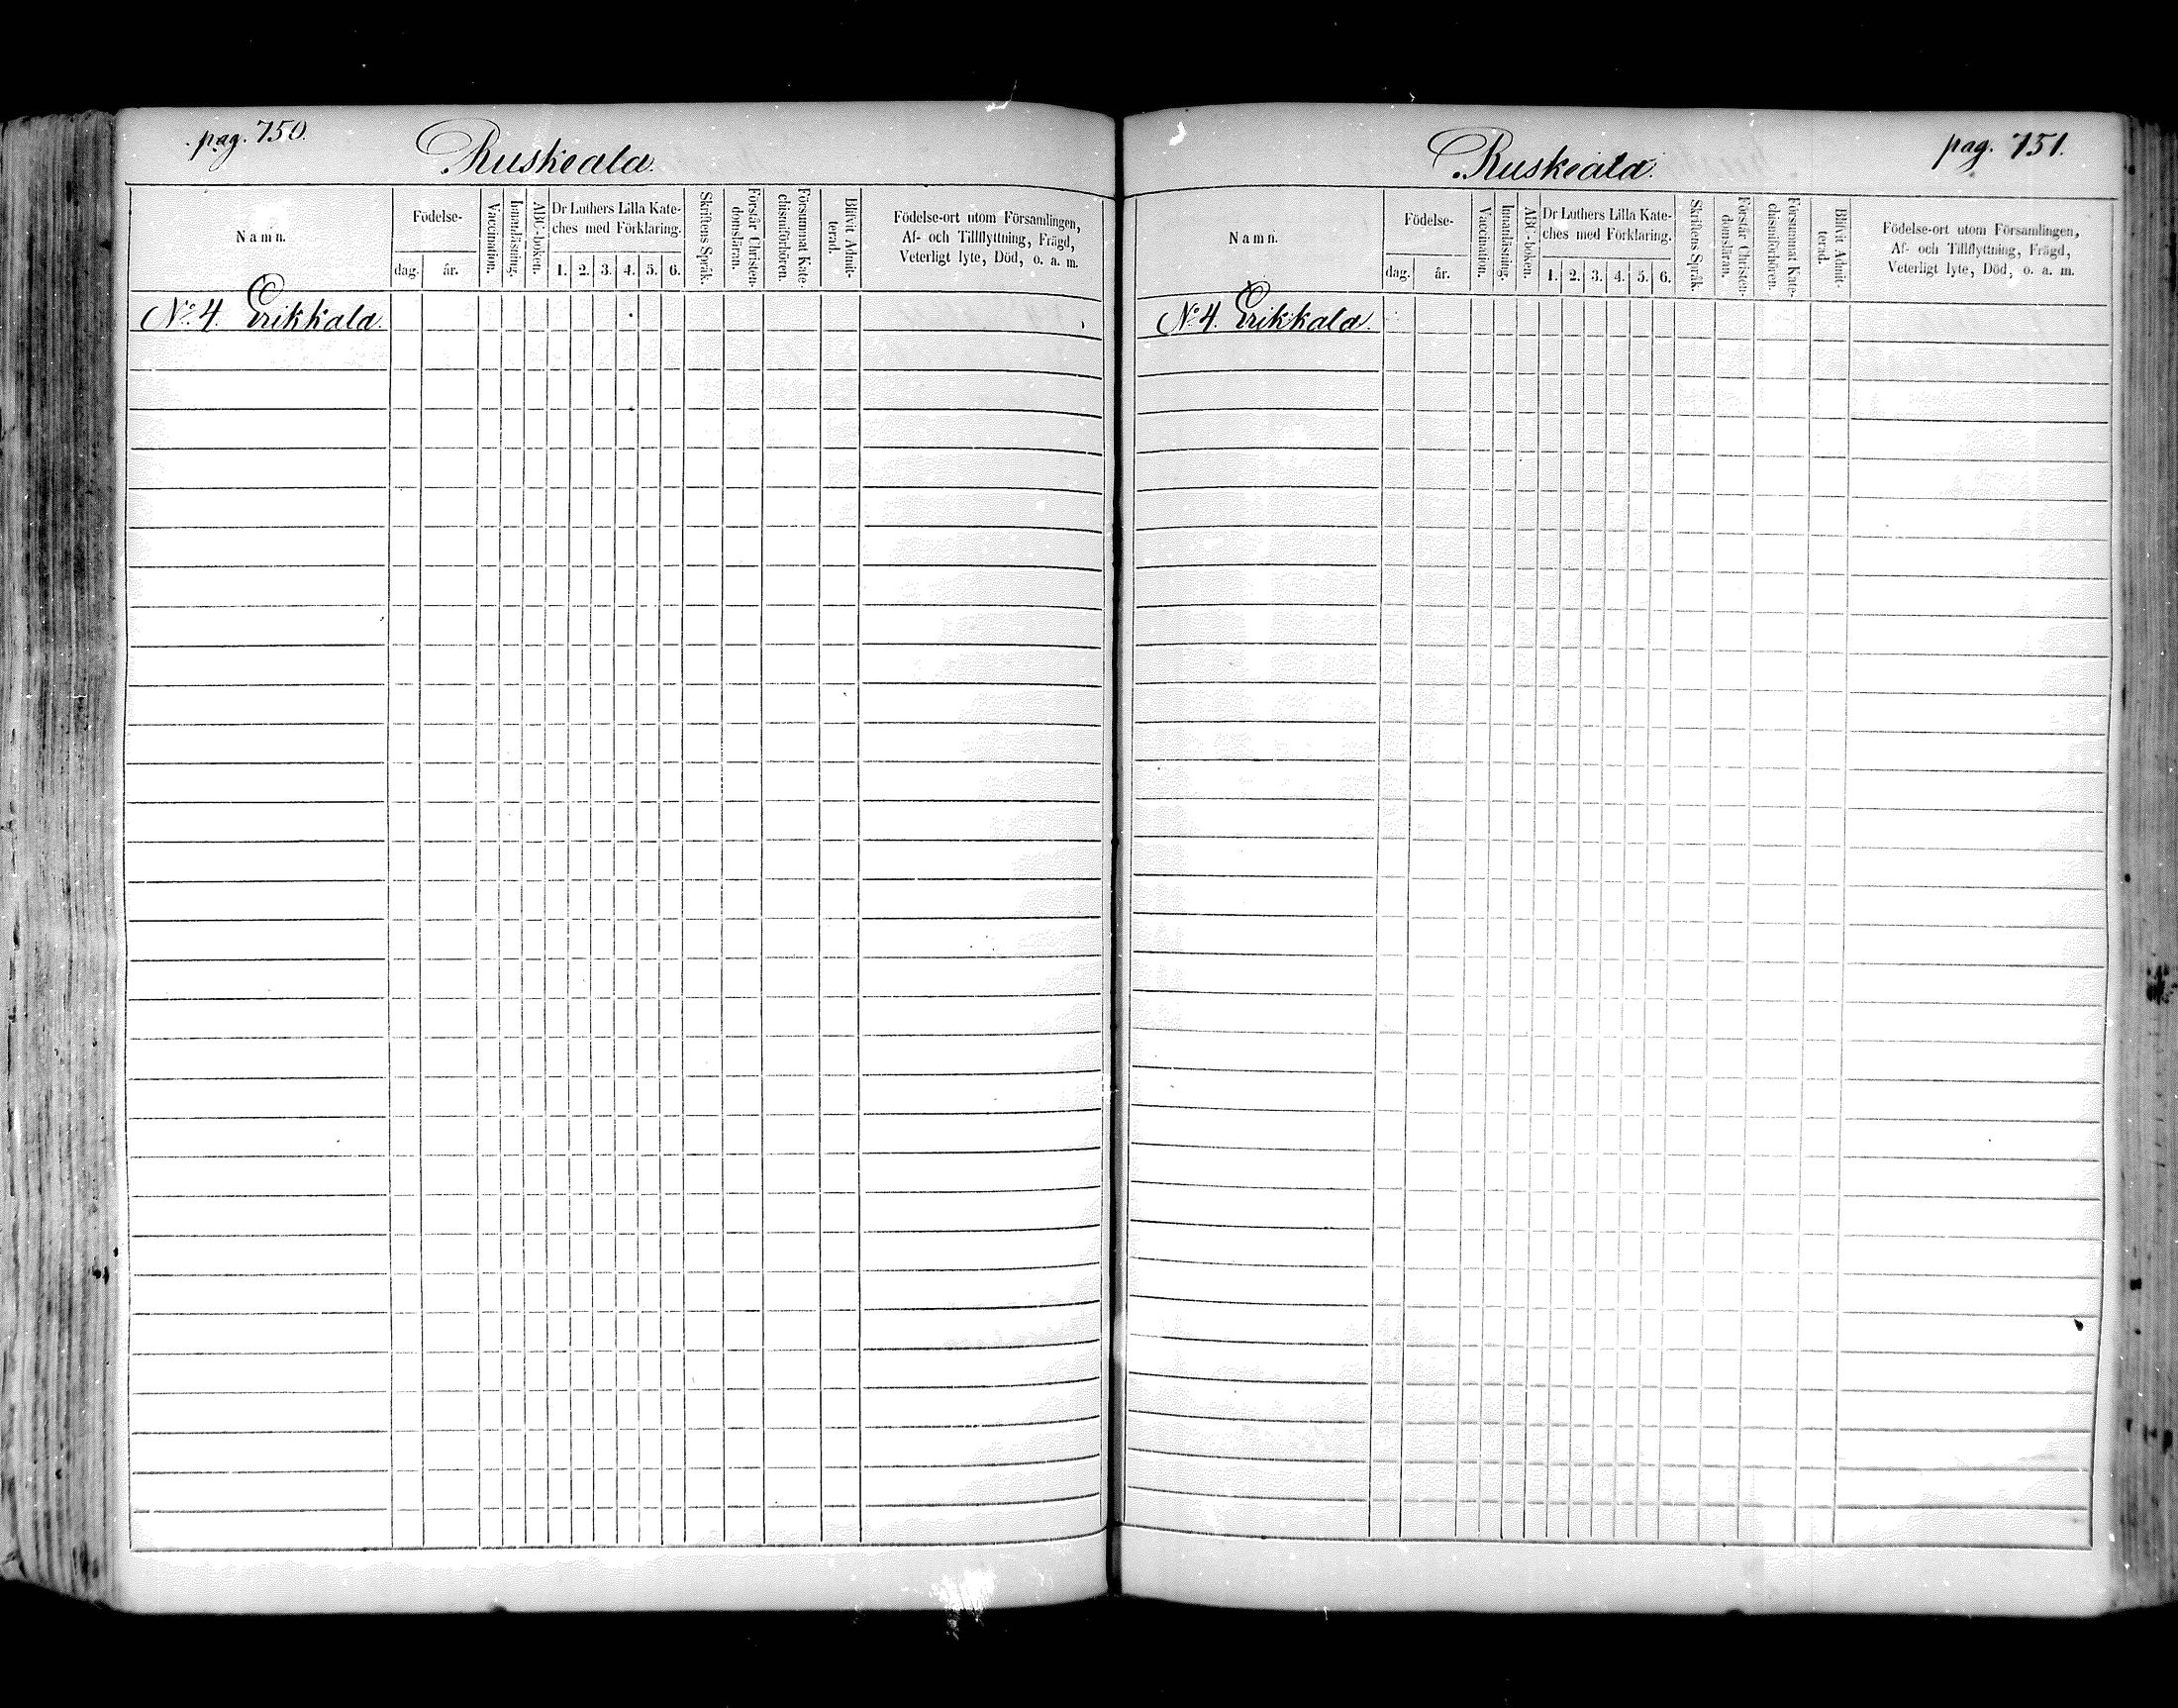 pag. 750.
Ruskeala.
Namn.
Födelse-
dag.
år.
Vaccination.
Innanläsning.
ABC-boken.
Dr Luthers Lilla Kate-
ches med Förklaring.
1. 2. 3. 4. 5. 6.
Skriftens Språk.
Förstår Christen-
domsläran.
Försummat Kate-
chismiförhören.
Blifvit Admit-
terad.
Födelse-ort utom Församlingen,
Af- och Tillflyttning, Frägd,
Veterligt lyte, Död, o. a. m.
No 4. Erikkala.
pag. 751.
Ruskeala.
Namn.
Födelse-
dag.
år.
Vaccination.
Innanläsning.
ABC-boken.
Dr Luthers Lilla Kate-
ches med Förklaring.
1. 2. 3. 4. 5. 6.
Skriftens Språk.
Förstår Christen-
domsläran.
Försummat Kate-
chismiförhören.
Blifvit Admit-
terad.
Födelse-ort utom Församlingen,
Af- och Tillflyttning, Frägd,
Veterligt lyte, Död, o. a. m.
No 4. Erikkala.